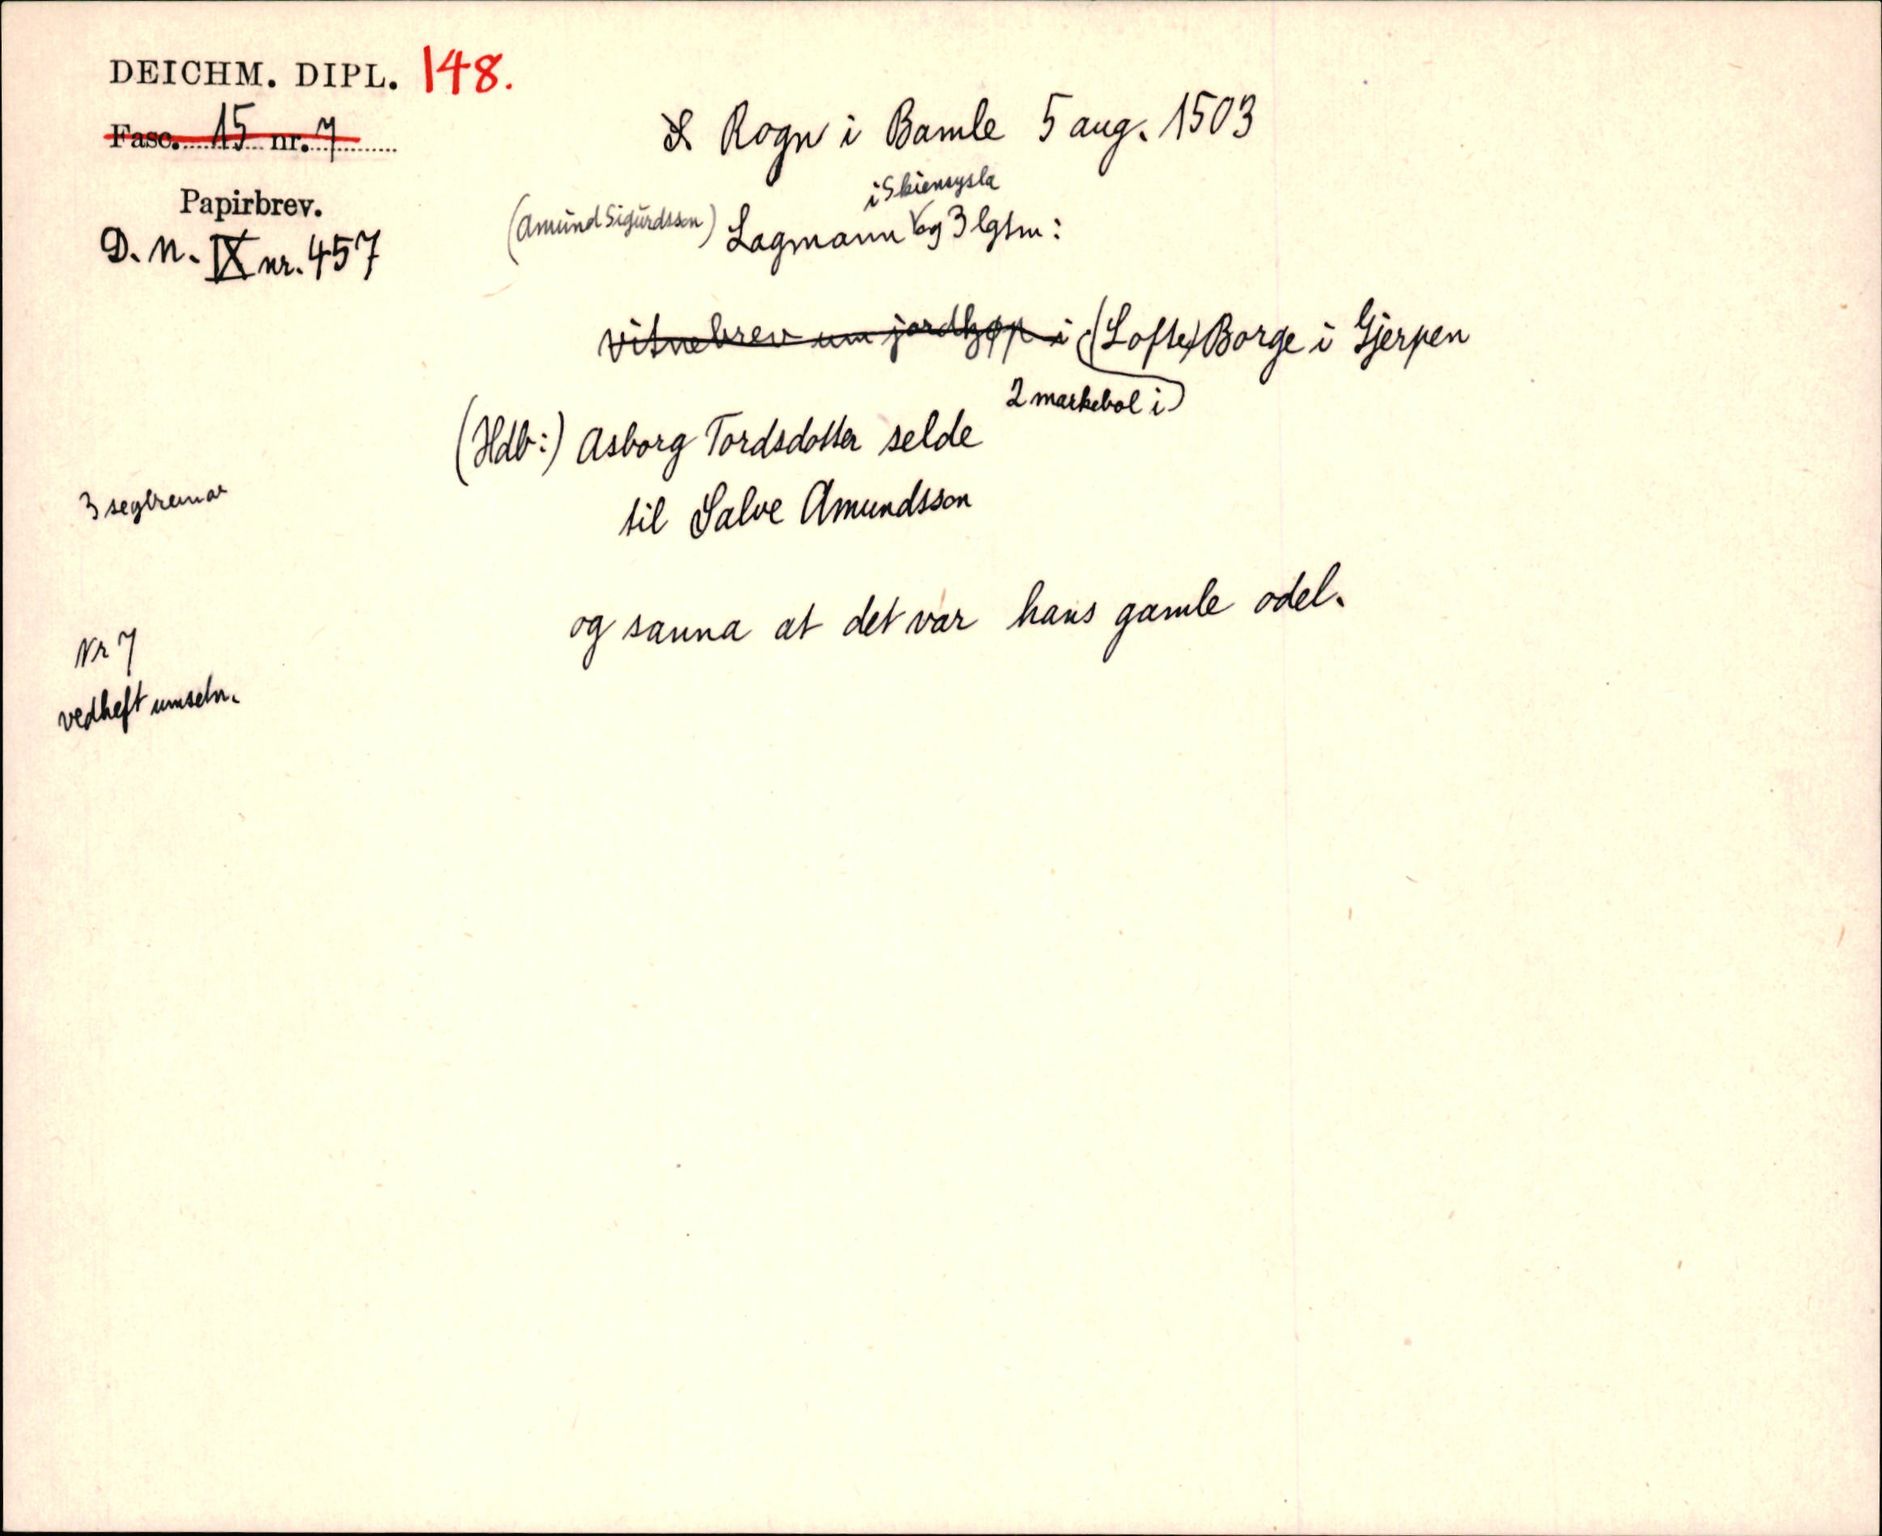 DEICHM. DIPL. 148.
Fasc. 15 nr. 7
Papirbrev.
D. N. IX nr. 457
Rogn i Bamle 5 aug. 1503
i Skiensysla
(Amund Sigurdsson) Lagmann og 3 lgtm:
vitnebrev um jordkjøp i (Lofte) Borge i Gjerpen
2 markebol i
(Hdb:) Asborg Tordsdotter selde
til Salve Amundsson
3 segbreimar
og sanna at det var hans gamle odel.
Nr 7
vedheft umsebr.